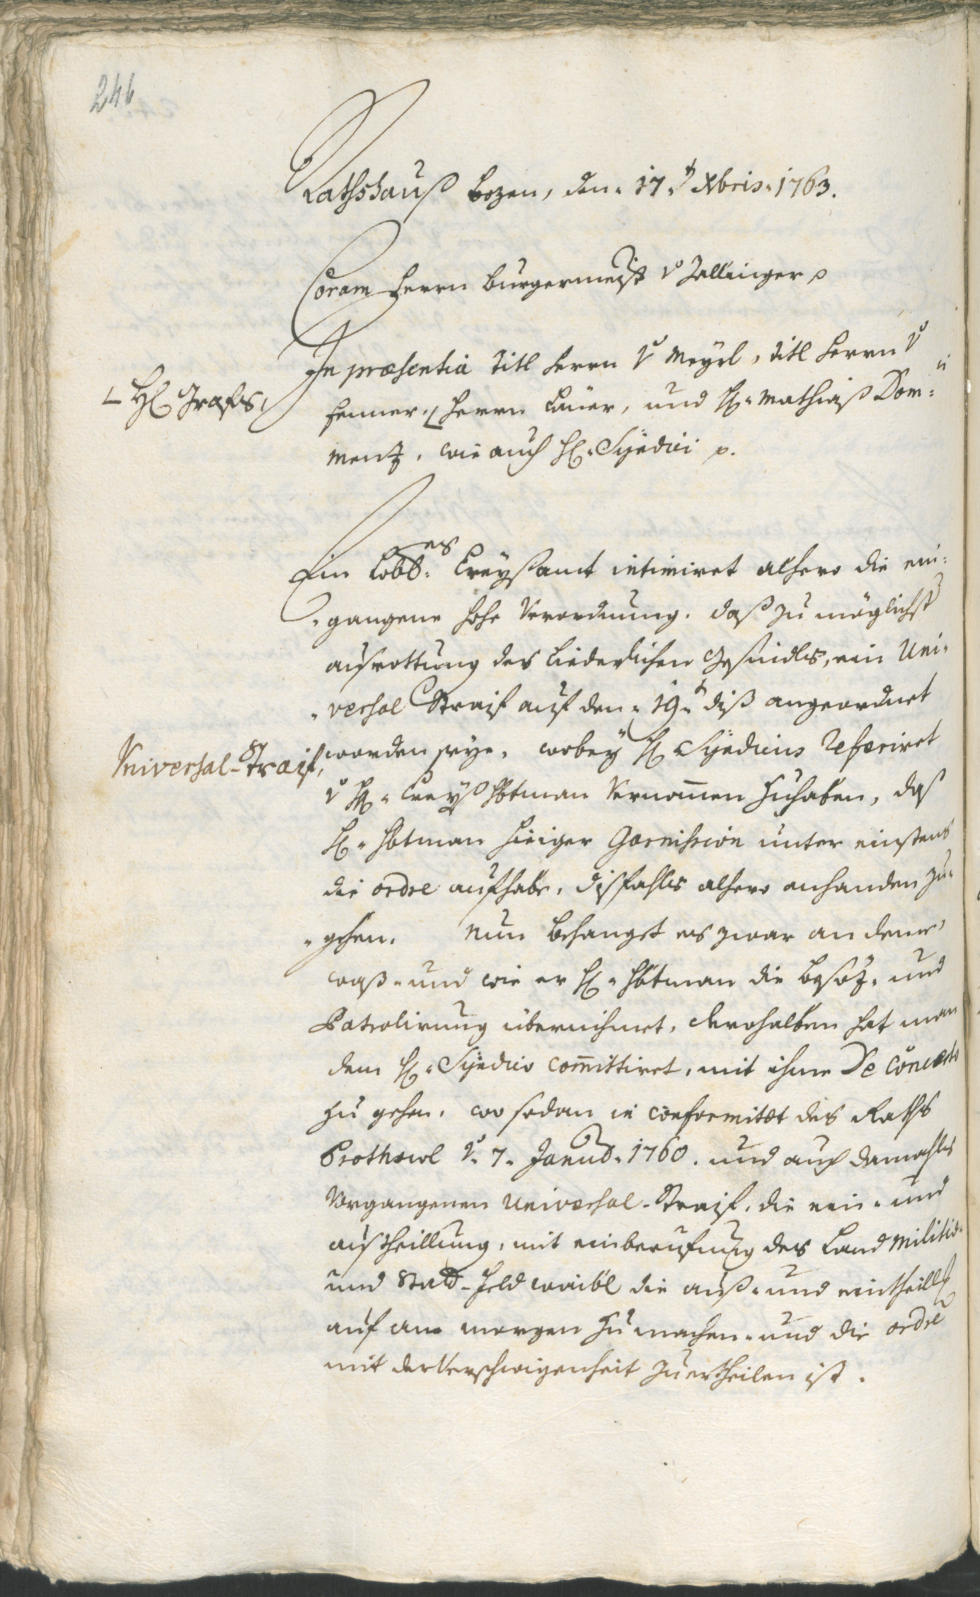 246
Rathshauß Bozen, den 17.t Xbris 1763.
Coram Herrn Burgermeist. v. Zallinger p
In præsentia Titl Herrn v. Meyrl, Titl Herrn v.
Hl. Grafs,
Henner, Herrn Lauer, und H. Mathias Dom=
mentz, wie auch H. Syndici p.
Ein Löbb.es Creysamt intimiret alhero die ein=
gangene hohe Verordnung, daß zu möglichst
ausrottung des Liederlichen Gesindls, ein Uni=
versal Straif auf den 19.t diß angeordnet
Universal-Straif,
worden seye. wobey H. Syndicus referiret
v. H. Creyshbtman vernomen zuhaben, daß
H. Hbtman hiesiger Garnision unter einstens
die ordre aufhabe, disfahls alhero anhanden zu=
gehen. Nun behanget es zwar an deme,
waß- und wie er H. Hbtman die besöz- und
Patrolirung übernihmet, derohalben hat man
dem H. Syndico committiret, mit ihme de Concerto
zu gehen, wo sodan in Conformitæt des Raths
Prothocol v. 7. Januar 1760. und auch damahls
vorgangenen Universal-Straif, die ein- und
austheillung, mit einberuffung des Land Militiæ-
und Statt-Feldwaibl die auß- und eintheillg
auf am morgen zu machen- und die ordre
mit der Verschwigenheit zuertheilen ist.